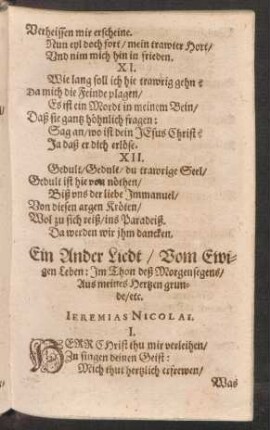 Verheissen mir erscheine.
Nun eyl doch fort / mein trawter Hort /
Vnd nim mich hin in frieden.
XI.
Wie lang soll ich hie trawrig gehn?
Da mich die Feinde plagen /
Es ist ein Mordt in meinem Bein /
Daß sie gantz höhnlich fragen:
Sag an / wo ist dein JEsus Christ?
Ja daß er dich erlöse.
XII.
Gedult / Gedult / du trawrige Seel /
Gedult ist hie von nöthen /
Biß vns der liebe Immanuel /
Von diesen argen Kröten /
Wol zu sich reiß / ins Paradeiß.
Da werden wir ihm dancken.
Ein Ander Liedt / Vom Ewi-
gen Leben: Im Thon deß Morgensegens /
Aus meines Hertzen grun-
de / etc.
IEREMIAS NICOLAI.
I.
HERR CHrist thu mir verleihen /
Zu singen deinen Geist:
Mich thut hertzlich erfrewen /
Was